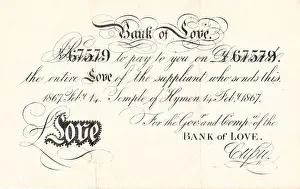 Bank of Love.
No 67579 to pay to you on No 67579.
the entire Love of the suppliant who sends this.
1867. Feby 14. Temple of Hymen 14 Feby 1867.
For the Govr and Compy of the
BANK OF LOVE.
Love
Cupid